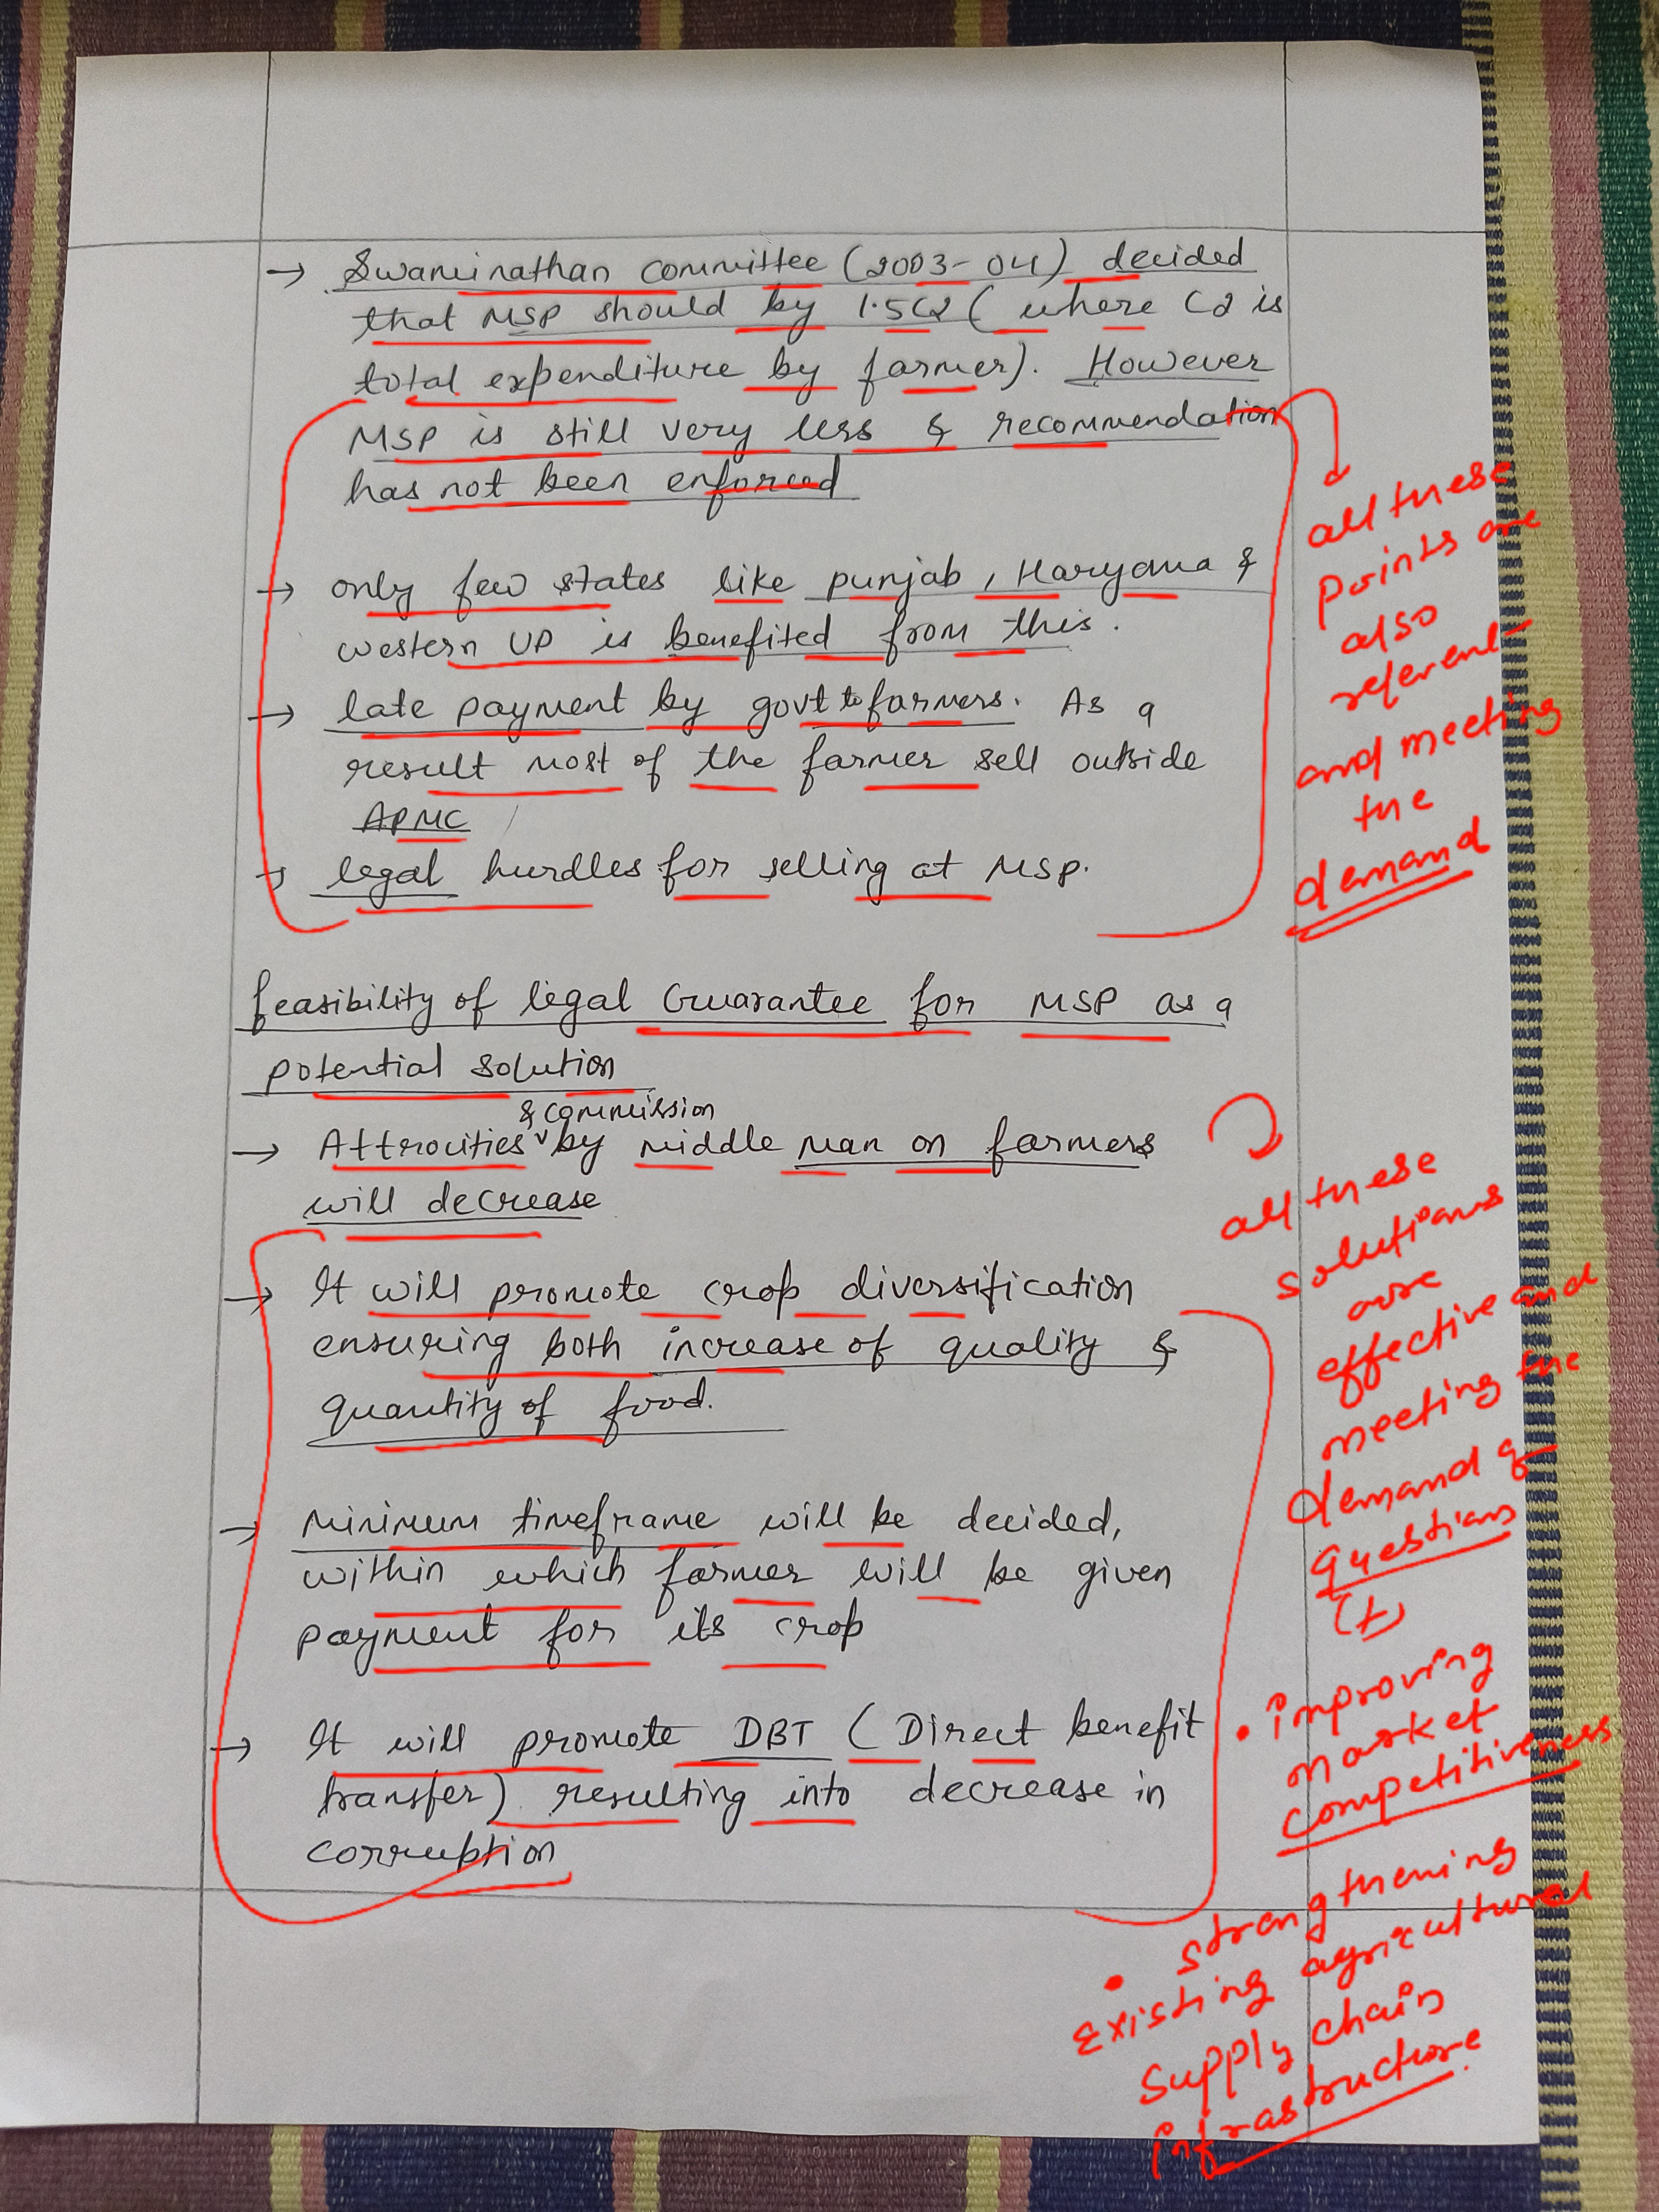 → Swaminathan committee (2003-04) decided
that MSP should by 1.5C2 ( where C2 is
total expenditure by farmer). However
MSP is still very less & recommendation
has not been enforced
→ only few states like punjab, Haryana &
western UP is benefited from this.
→ late payment by govt to farmers. As a
result most of the farmer sell outside
APMC
→ legal hurdles for selling at MSP.
all these
points are
also
referent
and meeting
the
demand
feasibility of legal Guarantee for MSP as a
potential solution
& commission
→ Attrocities by middle man on farmers
will decrease
→ It will promote crop diversification
ensuring both increase of quality &
quantity of food.
→ Minimum timeframe will be decided,
within which farmer will be given
payment for its crop
→ It will promote DBT (Direct benefit
transfer) resulting into decrease in
corruption
all these
solutions
are
effective and
meeting the
demand of
questions
(+)
• improving
market
competitiveness
• strengthening
existing agricultural
supply chain
infrastructure.